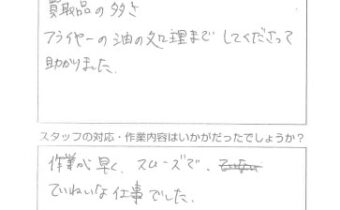 買取品の多さ
フライヤーの油の処理まで してくださって
助かりました.
スタッフの対応・作業内容はいかがだったでしょうか？
作業が早く、スムーズで、
ていねいな仕事でした.